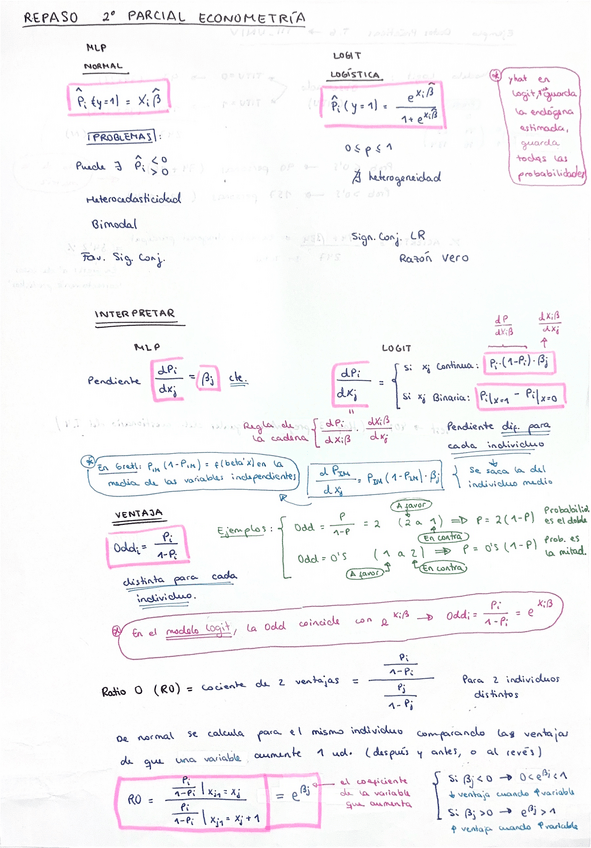 REPASO 2º PARCIAL ECONOMETRÍA
MLP
NORMAL
P̂i (y=1) = Xi β̂
PROBLEMAS:
Puede ∃ P̂i <0 >0
Heterocedasticidad
Bimodal
Fav. Sig. Conj.
LOGIT
LOGÍSTICA
P̂i (y=1) = e^{Xiβ̂} / (1 + e^{Xiβ̂})
0 ≤ p ≤ 1
∄ heterogeneidad
Sign. Conj. LR
Razón Vero
* yhat en
logit, guarda
la endógena
estimada,
guarda
todas las
probabilidades
INTERPRETAR
MLP
Pendiente dPi/dxj = βj cte.
LOGIT
dP/dXiβ dXiβ/dxj
dPi/dxj = { Si xj Continua: Pi·(1-Pi)·βj
Si xj Binaria: Pi|x=1 - Pi|x=0
Regla de
la cadena { dPi/dXiβ dXiβ/dxj
Pendiente dif. para
cada individuo
* En Gretl: PIM (1-PIM) = f(beta'x) en la
media de las variables independientes
dPIM/dxj = PIM (1-PIM)·βj
{ Se saca la del
individuo medio
VENTAJA
Oddi = Pi/(1-Pi)
distinta para cada
individuo.
Ejemplos: { Odd = P/(1-P) = 2 (2 a 1) ⇒ P = 2(1-P) Probabilid
es el doble
A favor
En contra
Odd = 0'5 (1 a 2) ⇒ P = 0'5 (1-P) Prob. es
la mitad.
A favor
En contra
* En el modelo Logit, la Odd coincide con e^{Xiβ} → Oddi = Pi/(1-Pi) = e^{Xiβ}
Ratio O (RO) = cociente de 2 ventajas = (Pi/(1-Pi)) / (Pj/(1-Pj)) Para 2 individuos
distintos
De normal se calcula para el mismo individuo comparando las ventajas
de que una variable aumente 1 ud. (después y antes, o al revés)
RO = (Pi/(1-Pi) | xj1 = xj) / (Pi/(1-Pi) | xj1 = xj + 1) = e^{βj} ← el coeficiente
de la variable
que aumenta
{ Si βj<0 → 0<e^{βj}<1
↓ ventaja cuando ↑ variable
Si βj>0 → e^{βj}>1
↑ ventaja cuando ↑ variable